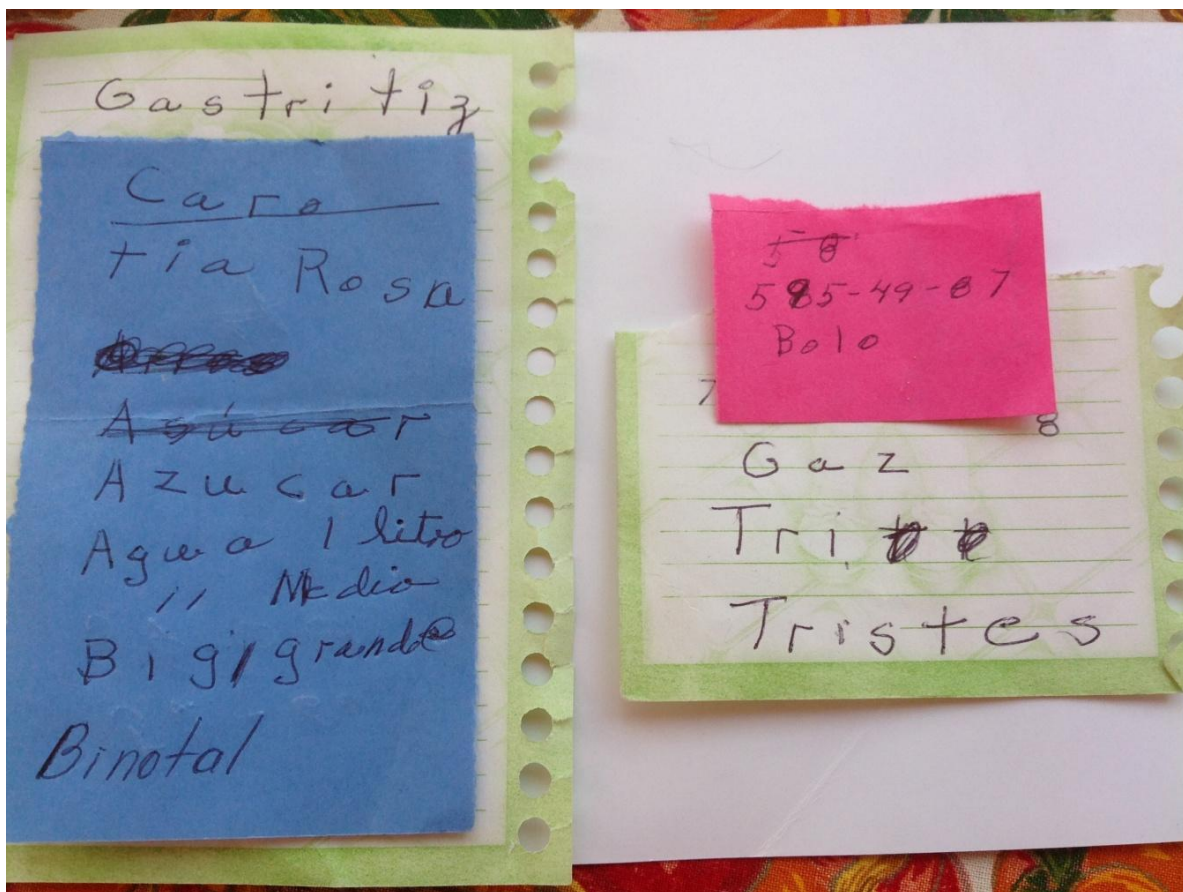 Gastritiz
Caro
tia Rosa
Asúcar
Azucar
Agua 1 litro
" Medio
Big/grande
Binotal
58
585-49-87
Bolo
7
8
Gaz
Tri
Tristes